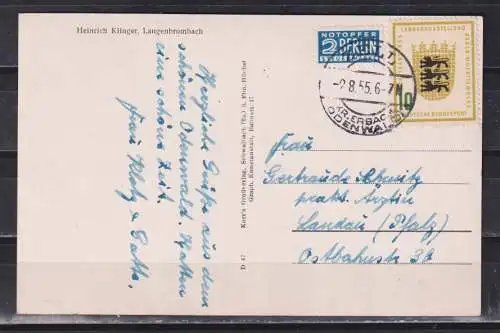 Heinrich Klinger, Langenbrombach
Herzliche Grüße aus dem
schönen Odenwald. Hatten
eine schöne Zeit.
Frau Klotz & Gatte.
Kurt's Großverlag, Schwalbach (Ts.) b. Ffm.-Höchst
D 47
NOTOPFER
2 BERLIN
STEUERMARKE
-2.8.55.6-7
KR.ERBACH
ODENWALD
LANDESAUSSTELLUNG
BADEN-WÜRTTEMBERG
DEUTSCHE BUNDESPOST
10
Frau
Gertraude
prakt. Ärztin
Landau (Pfalz)
Ostbahnstr. 38